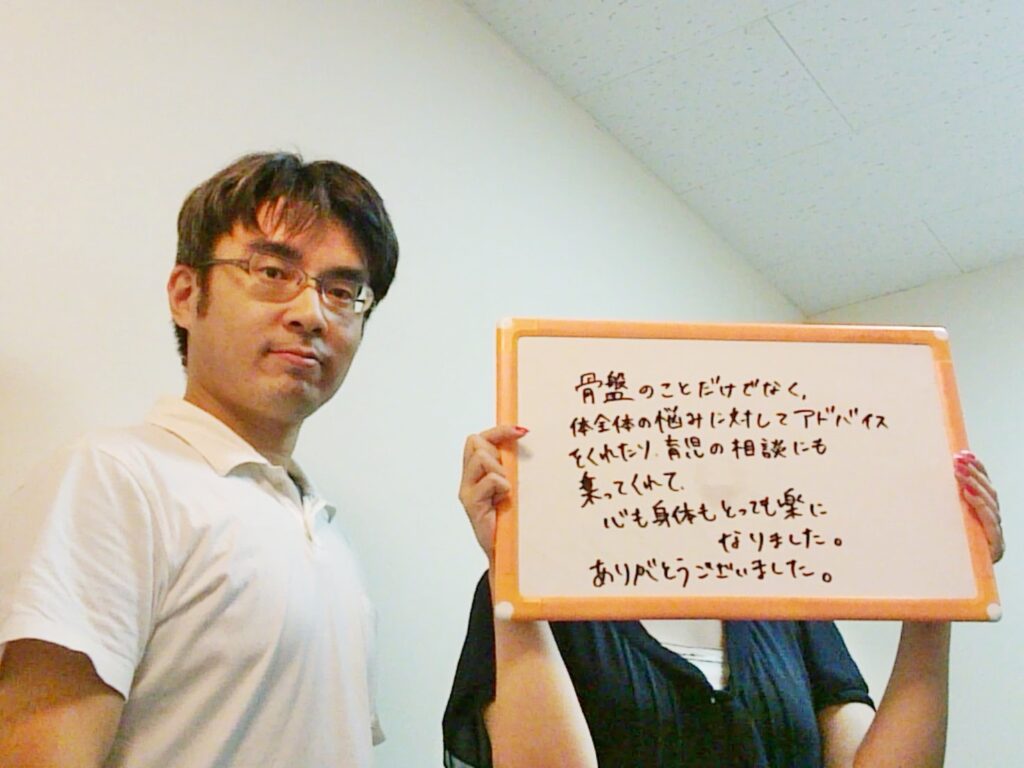 骨盤のことだけでなく、
体全体の悩みに対してアドバイス
をくれたり、育児の相談にも
乗ってくれて、
心も身体もとっても楽に
なりました。
ありがとうございました。